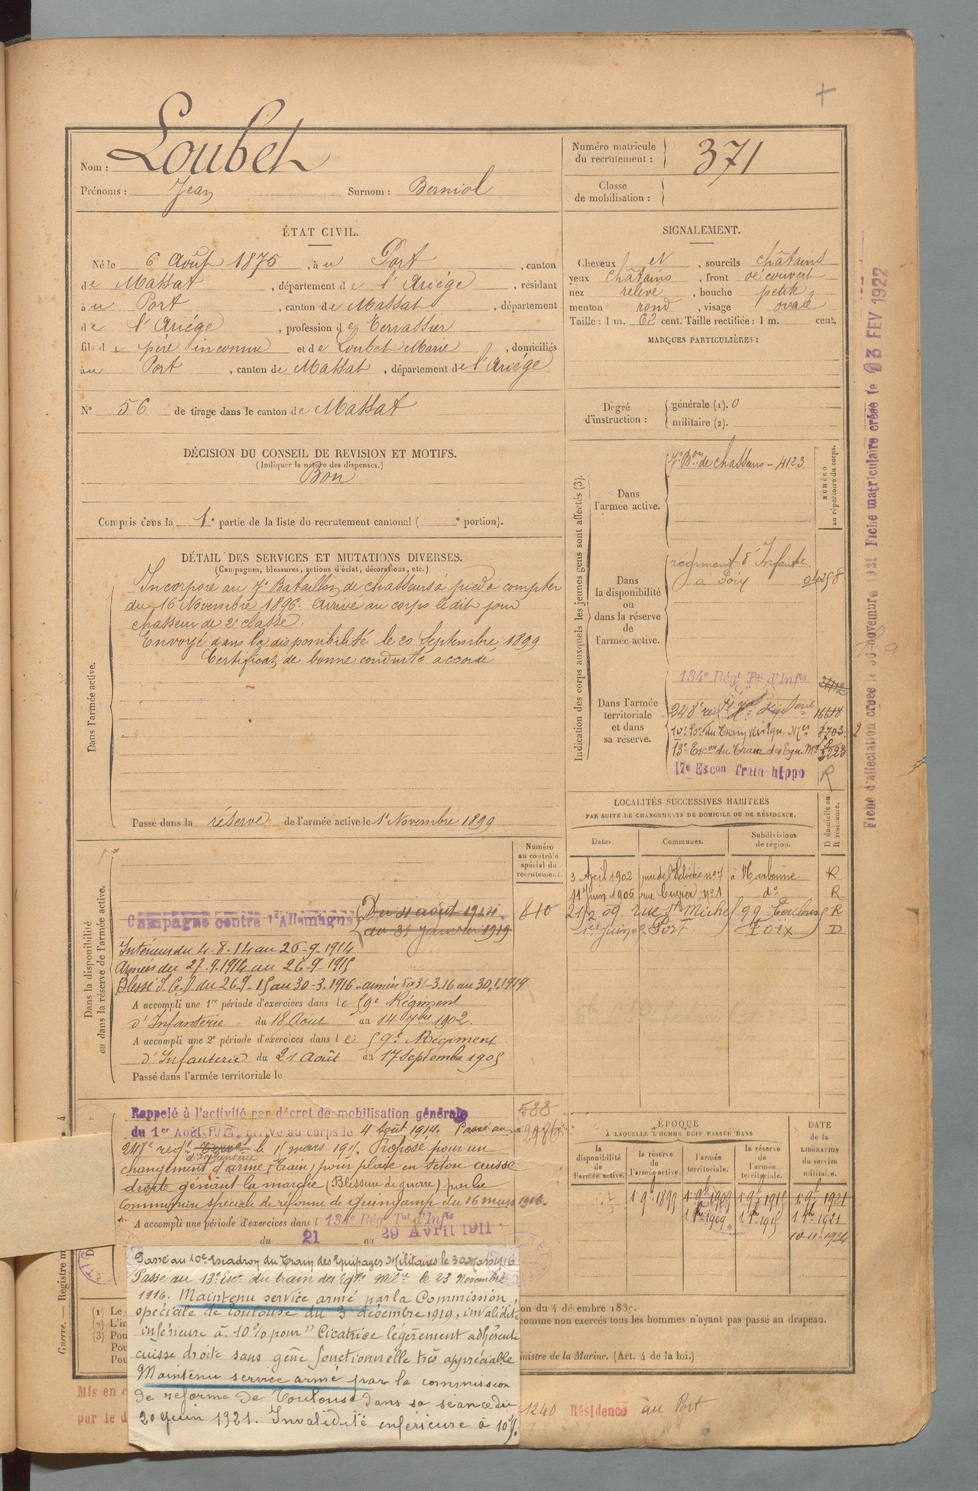 Nom : Loubet
Prénoms : Jean Surnom : Berniol
Numéro matricule du recrutement : 371
Classe de mobilisation :
ÉTAT CIVIL.
Né le 6 Août 1875, à u Port, canton
de Massat, département de l'Ariége, résidant
à u Port, canton de Massat, département
de l'Ariége, profession d Terrassier
fils de père inconnu et de Loubet Marie, domiciliés
à u Port, canton de Massat, département de l'Ariége
N° 56 de tirage dans le canton de Massat
SIGNALEMENT.
Cheveux et, sourcils châtains
yeux châtains, front découvert
nez relevé, bouche petite
menton rond, visage ovale
Taille : 1 m. 62 cent. Taille rectifiée : 1 m. cent.
MARQUES PARTICULIÈRES :
Degré d'instruction : générale (1). 0
militaire (2).
DÉCISION DU CONSEIL DE REVISION ET MOTIFS.
(Indiquer la nature des dispenses.)
Bon
Compris dans la 1e partie de la liste du recrutement cantonal ( e portion).
DÉTAIL DES SERVICES ET MUTATIONS DIVERSES.
(Campagnes, blessures, actions d'éclat, décorations, etc.)
Dans l'armée active.
Incorporé au 7e Bataillon de chasseurs à pied à compter
du 16 Novembre 1896. Arrivé au corps le dit jour
chasseur de 2e classe.
Envoyé dans la disponibilité le 20 Septembre 1899
Certificat de bonne conduite accordé
Passé dans la réserve de l'armée active le 1er Novembre 1899
Indication des corps auxquels les jeunes gens sont affectés (3).
NUMÉRO au répertoire du corps.
Dans l'armée active.
7e Bon de chasseurs - 4123
Dans la disponibilité ou dans la réserve de l'armée active.
régiment d'Infanterie
à Foix
Dans l'armée territoriale et dans sa réserve.
134e Régt Tal d'Infie
13e Escon du Train des Equ. Mres 5223
17e Escon train hippo R
Fiche d'affectation créée le 30 novembre 1931 Fiche matriculaire créée le 23 FEV 1922
LOCALITÉS SUCCESSIVES HABITÉES
PAR SUITE DE CHANGEMENTS DE DOMICILE OU DE RÉSIDENCE.
Dates. Communes. Subdivisions de région. D domicile ou R résidence.
3 Avril 1902 rue de l'Helvétie n° 7 à Narbonne R
11 Juin 1906 rue Cuvier n° 1 d° R
21/2 09. rue St Michel 99 Toulouse R
Port Foix D
Dans la disponibilité ou dans la réserve de l'armée active.
Numéro au contrôle spécial du recrutement.
810
Campagne contre l'Allemagne
Du 4 août 1914
au 31 janvier 1919
Intérieur du 4.8.14 au 26.9.1914
Armées du 27.9.1914 au 26.9.1915
Blessé I.C.I. du 26.9.15 au 30-3.1916 - armées du 31-3.16 au 30.1.1919
A accompli une 1re période d'exercices dans le 59e Régiment
d'Infanterie du 18 Août au 14 7bre 1902.
A accompli une 2e période d'exercices dans le 59e Régiment
d'Infanterie du 21 Août au 17 Septembre 1905
Passé dans l'armée territoriale le
588
Rappelé à l'activité par décret de mobilisation générale
du 1er Août 1914 arrivé au corps le 4 Août 1914. Passé au
248e régt d'Infanterie le 15 mars 1915. Proposé pour un
changement d'arme (Train) pour plaie en séton cuisse
droite gênant la marche (Blessure de guerre) par la
Commission spéciale de réforme de Guingamp du 16 mars 1916.
A accompli une période d'exercices dans l 134e Régt Tal d'Infie
du 21 au 29 Avril 1911
Passé au 10e Escadron du Train des Equipages Militaires le 30 Mars 1916
Passé au 13e Escon du train des Eqges Milres le 23 Novembre
1916. Maintenu service armé par la Commission
spéciale de Toulouse du 3 décembre 1919, invalidité
inférieure à 10% pour "Cicatrice légèrement adhérente
cuisse droite sans gêne fonctionnelle très appréciable
Maintenu service armé par la commission
de réforme de Toulouse dans sa séance du
20 Juin 1921. Invalidité inférieure à 10%.
ÉPOQUE
À LAQUELLE L'HOMME DOIT PASSER DANS
la disponibilité de l'armée active. la réserve de l'armée active. l'armée territoriale. la réserve de l'armée territoriale.
DATE de la LIBÉRATION du service militaire.
1 9bre 1899 1 9bre 1909 1 9bre 1915 1 9bre 1921
1 8bre 1909 1 8bre 1915 1 8bre 1921
10-11-1924
Guerre. — Registre m
(1) Le
(2) L'in
(3) Pou
Pou
on du 4 décembre 1889.
comme non exercés tous les hommes n'ayant pas passé au drapeau.
inistre de la Marine. (Art. 4 de la loi.)
Mis en c
par le d
1240 Résidence au Port